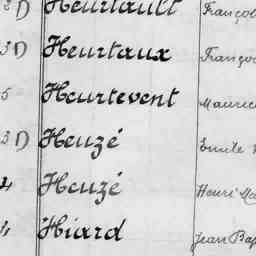 2 D Heurtault Franço
3 D Heurtaux Franço
5 Heurtevent Maurice
3 D Heuzé Emile
4 Heuzé Henri
4 Hiard Jean Bap